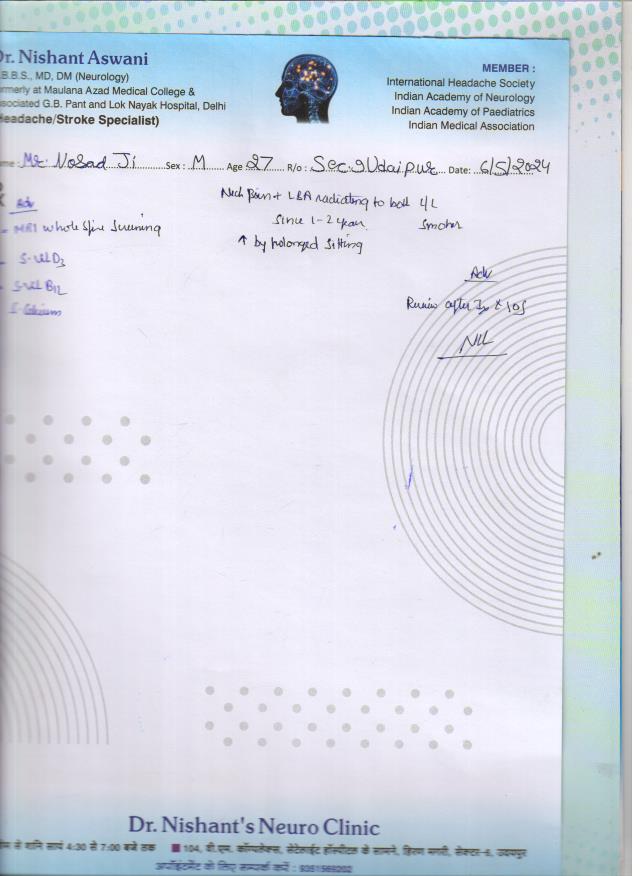 Dr. Nishant Aswani
.B.B.S., MD, DM (Neurology)
ormerly at Maulana Azad Medical College &
ssociated G.B. Pant and Lok Nayak Hospital, Delhi
Headache/Stroke Specialist)
MEMBER :
International Headache Society
Indian Academy of Neurology
Indian Academy of Paediatrics
Indian Medical Association
ame : Mr. Nosad Ji Sex : M Age 27 R/o : Sec. 9 Udaipur Date: 6/5/2024
Adv
- MRI whole spine screening
- S. vit D3
- S. vit B12
S. Calcium
Neck Pain + LBA radiating to both L/L
Since 1-2 year
Smoker
↑ by prolonged sitting
Adv
Review after
NIL
Dr. Nishant's Neuro Clinic
से शनि सायं 4:30 से 7:00 बजे तक ■ 104, डी.एम. कॉम्पलेक्स, सेटेलाईट हॉस्पीटल के सामने, हिरण मगरी, सेक्टर-6, उदयपुर
अपॉइंटमेंट के लिए सम्पर्क करें :